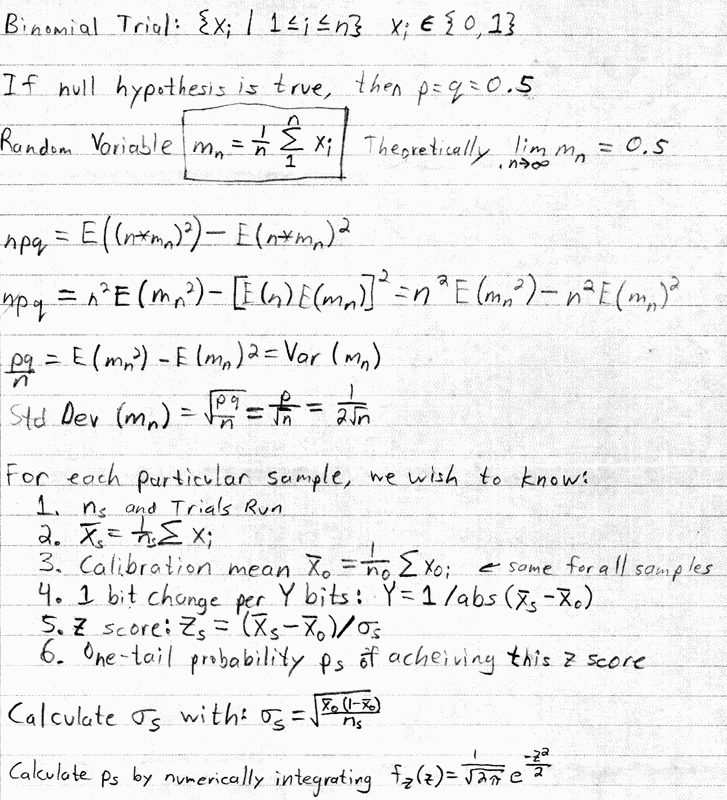 Binomial Trial: {xᵢ | 1≤i≤n} xᵢ ∈ {0,1}
If null hypothesis is true, then p=q=0.5
Random Variable mₙ = 1/n Σ₁ⁿ xᵢ Theoretically lim n→∞ mₙ = 0.5
npq = E((n*mₙ)²) - E(n*mₙ)²
npq = n²E(mₙ²) - [E(n)E(mₙ)]² = n²E(mₙ²) - n²E(mₙ)²
pq/n = E(mₙ²) - E(mₙ)2 = Var(mₙ)
Std Dev (mₙ) = √(pq/n) = p/√n = 1/(2√n)
For each particular sample, we wish to know:
1. nₛ and Trials Run
2. x̄ₛ = 1/nₛ Σ xᵢ
3. Calibration mean x̄₀ = 1/n₀ Σ x₀ᵢ ← same for all samples
4. 1 bit change per Y bits: Y = 1/abs(x̄ₛ-x̄₀)
5. z score: zₛ = (x̄ₛ-x̄₀)/σₛ
6. One-tail probability pₛ of acheiving this z score
Calculate σₛ with: σₛ = √(x̄₀(1-x̄₀)/nₛ)
Calculate pₛ by numerically integrating f_z(z) = 1/√(2π) e^(-z²/2)